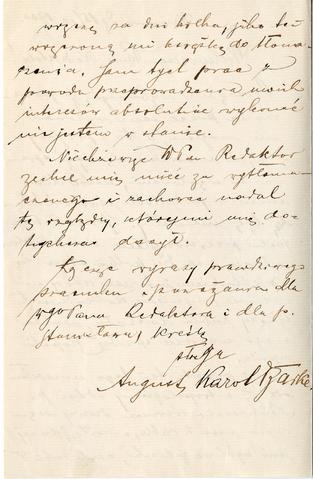 wręczę za dni kilka, jako też
wręczoną mi książkę do tłoma-
czenia. Sam tych prac z
powodu przeprowadzenia moich
interesów absolutnie wykonać
nie jestem w stanie.
Niechże WPan Redaktor
zechce mię mieć za wytłoma-
czonego i zachowa nadal
te względy, któremi mię do-
tychczas darzył.
Łączę wyrazy prawdziwego
szacunku i poważania dla
WgoPana Redaktora i dla p.
Stanisławy, kreślę
sługa
August Karol